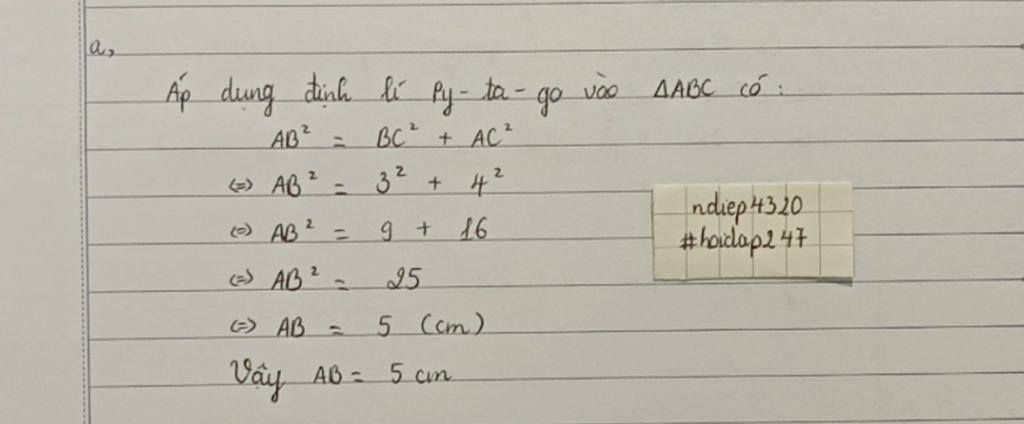 a,
Áp dụng định lí Py-ta-go vào ΔABC có:
AB² = BC² + AC²
(=) AB² = 3² + 4²
(=) AB² = 9 + 16
(=) AB² = 25
(=) AB = 5 (cm)
Vậy AB = 5 cm
ndiep4320
#hoidap247